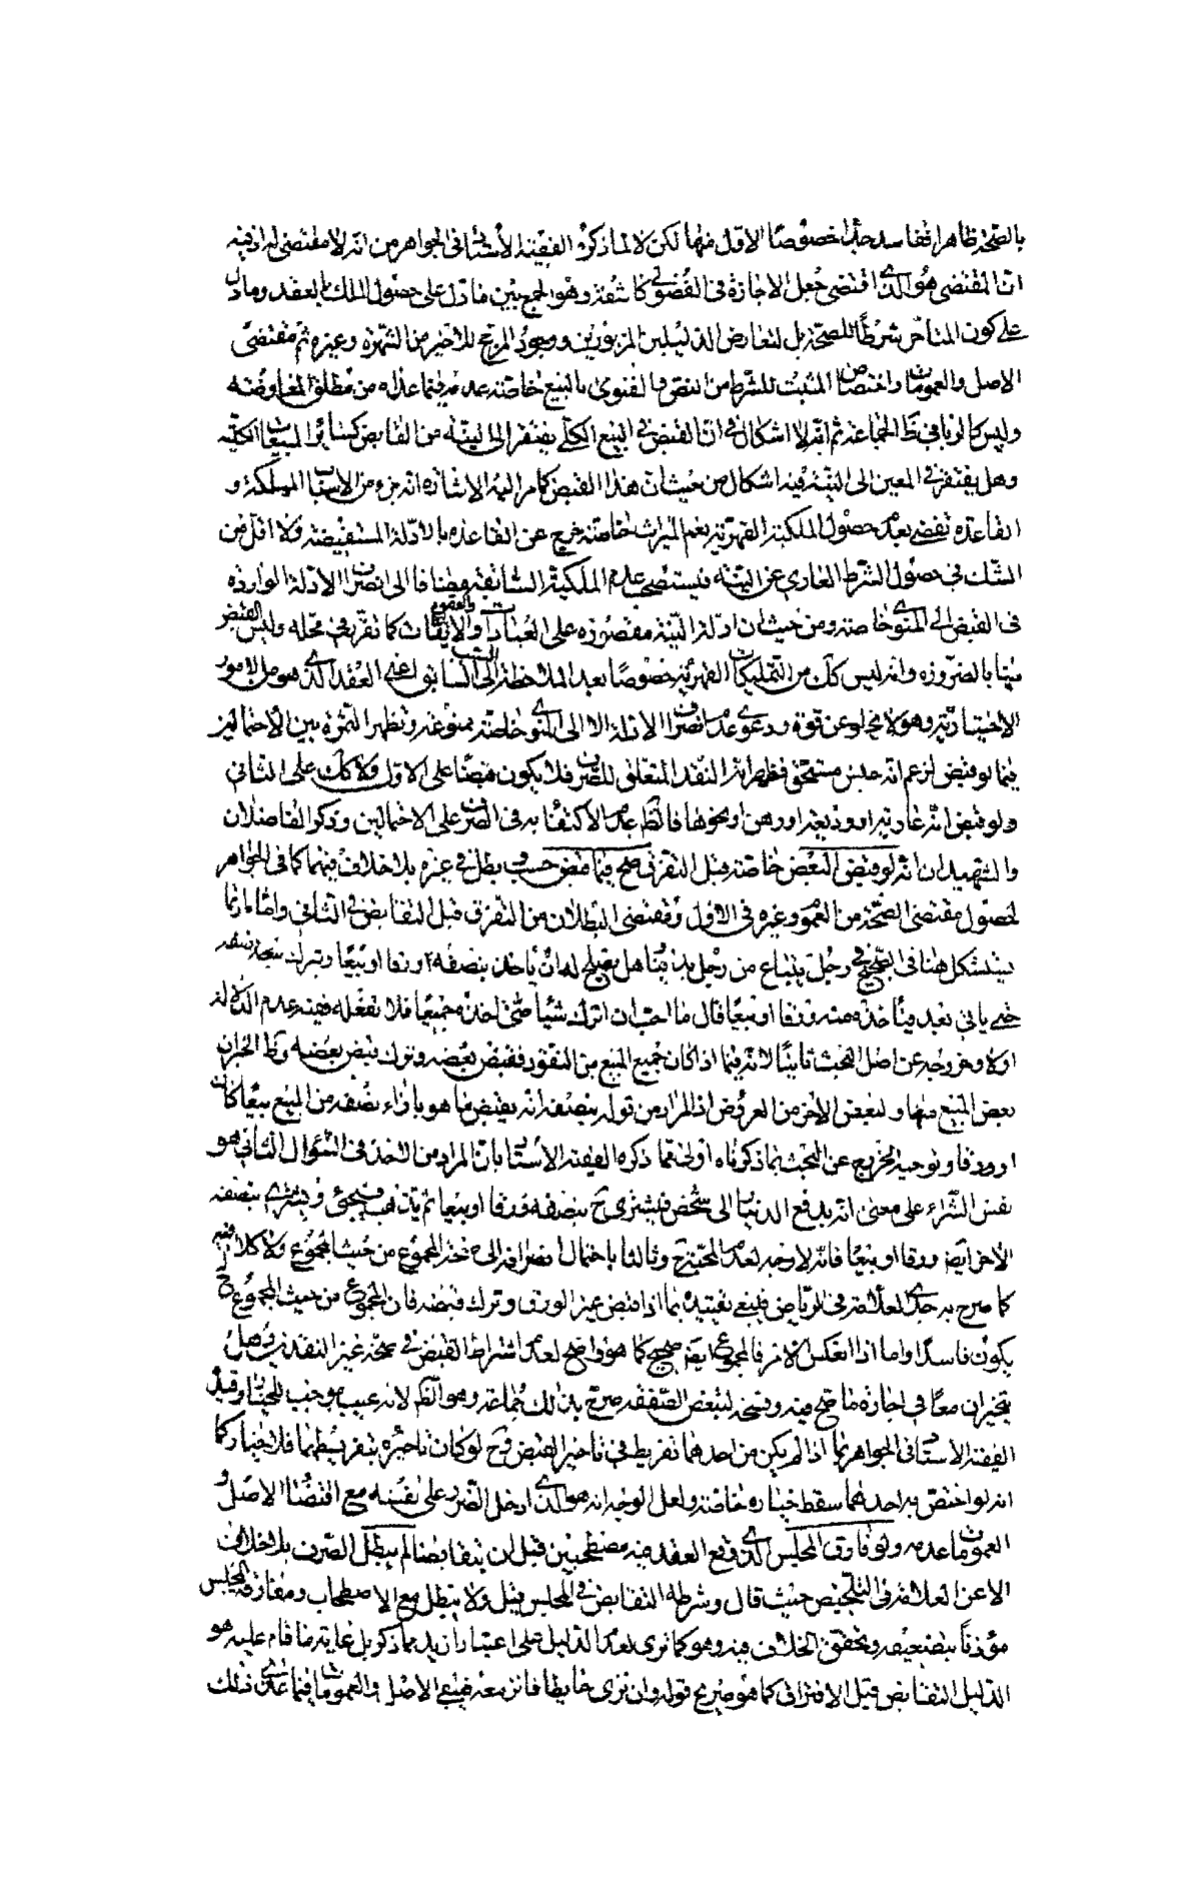 بالصحة ظاهرا ففاسد جدا خصوصا الاول منها لكن لا لما ذكره الفقيه الأستاذ في الجواهر من انه لا مقتضى له اذ فيه
ان المقتضى هو الذي اقتضى جعل الاجازة في الفضولي كاشفة وهو الجمع بين ما دل على حصول الملك بالعقد وما دل
على كون المتأخر شرطا للصحة بل لتعارض الدليلين المزبورين ووجود المرجح للأخير من الشهرة وغيره ثم مقتضى
الاصل والعمومات واختصاص المثبت للشرط من النص والفتوى بالبيع خاصة عدمه فيما عداه من مطلق المعاوضة
وليس كالربا في ظ الجماعة ثم انه لا اشكال في ان القبض في البيع الكلي يفتقر الى النية من القابض كسائر المبيعات الكلية
وهل يفتقر في المعين الى النية فيه اشكال من حيث ان هذا القبض كما مر اليه الاشارة انه جزء من الاسباب المملكة و
القاعدة تقضي بعدم حصول الملكية القهرية نعم الميراث خاصة خرج عن القاعدة بالادلة المستفيضة ولا اقل من
الشك في حصول الشرط العاري عن النية فيستصحب عدم الملكية السابقة مضافا الى انصراف الادلة الواردة
في القبض الى المنوي خاصة ومن حيث ان ادلة النية مقصورة على العبادات والعقود والايقاعات كما تقرر في محله وليس القبض
منها بالضرورة وانه ليس كل من التمليكات القهرية خصوصا بعد الملاحظة الى السبب السابق اعني العقد الذي هو من الامور
الاختيارية وهو لا يخلو عن قوة ودعوى عدم انصراف الادلة الا الى المنوي خاصة ممنوعة وتظهر الثمرة بين الاحتمالين
فيما لو قبض لزعم انه جنس مستحق فظهر انه النقد المتعلق للصرف فلا يكون قبضا على الاول ولا كك على الثاني
ولو قبض انه عارية او وديعة او رهن او نحوها فالظ عدم الاكتفاء به في الصرف على الاحتمالين وذكر الفاضلان
والشهيدان انه لو قبض البعض خاصة قبل التفرق صح فيما قبض حسب وبطل في غيره بلا خلاف فيهما كما في الجواهر
لحصول مقتضى الصحة من العموم وغيره في الاول ومقتضى البطلان من التفرق قبل التقابض في الثاني واما ما ربما
يستشكل هنا في الصحيح في رجل يبتاع من رجل بدينار هل يصلح له ان يأخذ بنصفه ورقا او بيعا ويترك نصفه
حتى يأتي بعد فيأخذ منه ورقا او بيعا قال ما احب ان اترك شيئا حتى اخذه جميعا فلا تفعله ففيه عدم الدلالة
اولا وخروجه عن اصل البحث ثانيا لانه فيما اذا كان جميع المبيع من النقود فقبض بعضه وترك قبض بعضه وظ الخبر ان
بعض المبيع منها ولبعض الاخر من العروض اذ المراد من قوله بنصفه انه يقبض ما هو بازاء نصفه من المبيع بيعا كان
او ورقا وتوجيه الخروج عن البحث بما ذكرناه اولى مما ذكره الفقيه الأستاذ بان المراد من الاخذ في السؤال الثاني هو
نفس الشراء على معنى انه يدفع الدينار الى شخص فيشترى ح بنصفه ورقا او بيعا ثم يذهب فيجئ ويشتري بنصفه
الاخر ايضا ورقا او بيعا فانه لا وجه لعدم المحبة ح وثالثا باحتمال انصرافه الى صحة المجموع من حيث المجموع ولا كلام فيه
كما صرح به جدي العلامة في الرياض فينبغي تقييده بما اذا قبض غير الورق وترك قبضه فان المجموع من حيث المجموع ح
يكون فاسدا واما اذا انعكس الامر فالمجموع ايضا صحيح كما هو واضح لعدم اشتراط القبض في صحة غير النقدين وهل
يتخيران معا في اجازة ما صح فيه وفسخه لتبعض الصفقة صرح بذلك جماعة وهو الظ لانه عيب موجب للخيار وقيد
الفقيه الأستاذ في الجواهر بما اذا لم يكن من احدهما تفريط في تأخير القبض وح لو كان تأخيره بتفريطهما فلا خيار كما
انه لو اختص به احدهما سقط خياره خاصة ولعل الوجه انه هو الذي ادخل الضرر على نفسه مع اقتضاء الاصل و
العمومات عدمه ولو فارق المجلس الذي وقع العقد فيه مصطحبين قبل ان يتقابضا لم يبطل الصرف بلا خلاف
الا عن العلامة في التلخيص حيث قال وشرطه التقابض في المجلس قبل ولا يبطل مع الاصطحاب ومفارقة المجلس
مؤذنا بتضعيفه وتحقق الخلاف فيه وهو كما ترى لعدم الدليل على اعتبار ازيد مما ذكر بل غاية ما قام عليه هو
الدليل التقابض قبل الافتراق كما هو صريح قوله وان نزى حائطا فانز معه فينبغي الاصل والعمومات فيما عدى ذلك